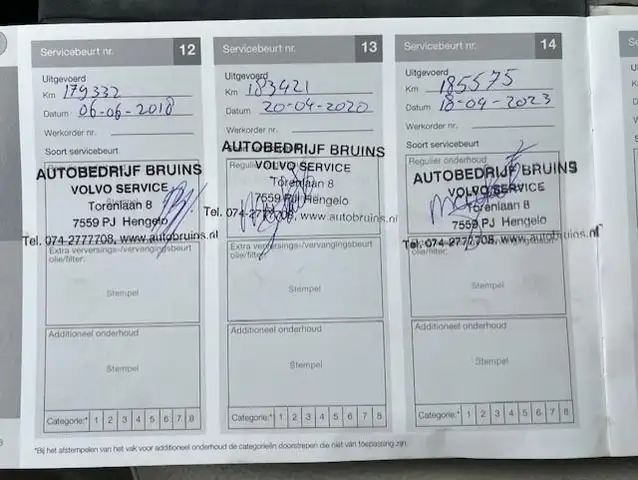 Servicebeurt nr. 12
Uitgevoerd
Km 179332
Datum 06-06-2018
Werkorder nr.
Soort servicebeurt
AUTOBEDRIJF BRUINS
VOLVO SERVICE
Torenlaan 8
7559 PJ Hengelo
Tel. 074-2777708, www.autobruins.nl
Extra verversings-/vervangingsbeurt
olie/filter:
Stempel
Additioneel onderhoud
Stempel
Categorie:* 1 2 3 4 5 6 7 8
Servicebeurt nr. 13
Uitgevoerd
Km 183421
Datum 20-04-2020
Werkorder nr.
AUTOBEDRIJF BRUINS
VOLVO SERVICE
Torenlaan 8
7559 PJ Hengelo
Tel. 074-2777708, www.autobruins.nl
Extra verversings-/vervangingsbeurt
olie/filter:
Stempel
Additioneel onderhoud
Stempel
Categorie:* 1 2 3 4 5 6 7 8
Servicebeurt nr. 14
Uitgevoerd
Km 185575
Datum 18-04-2023
Werkorder nr.
Soort servicebeurt
Regulier onderhoud
AUTOBEDRIJF BRUINS
VOLVO SERVICE
Torenlaan 8
7559 PJ Hengelo
Tel. 074-2777708, www.autobruins.nl
olie/filter:
Stempel
Additioneel onderhoud
Stempel
Categorie:* 1 2 3 4 5 6 7 8
*Bij het afstempelen van het vak voor additioneel onderhoud de categorieën doorstrepen die niet van toepassing zijn.